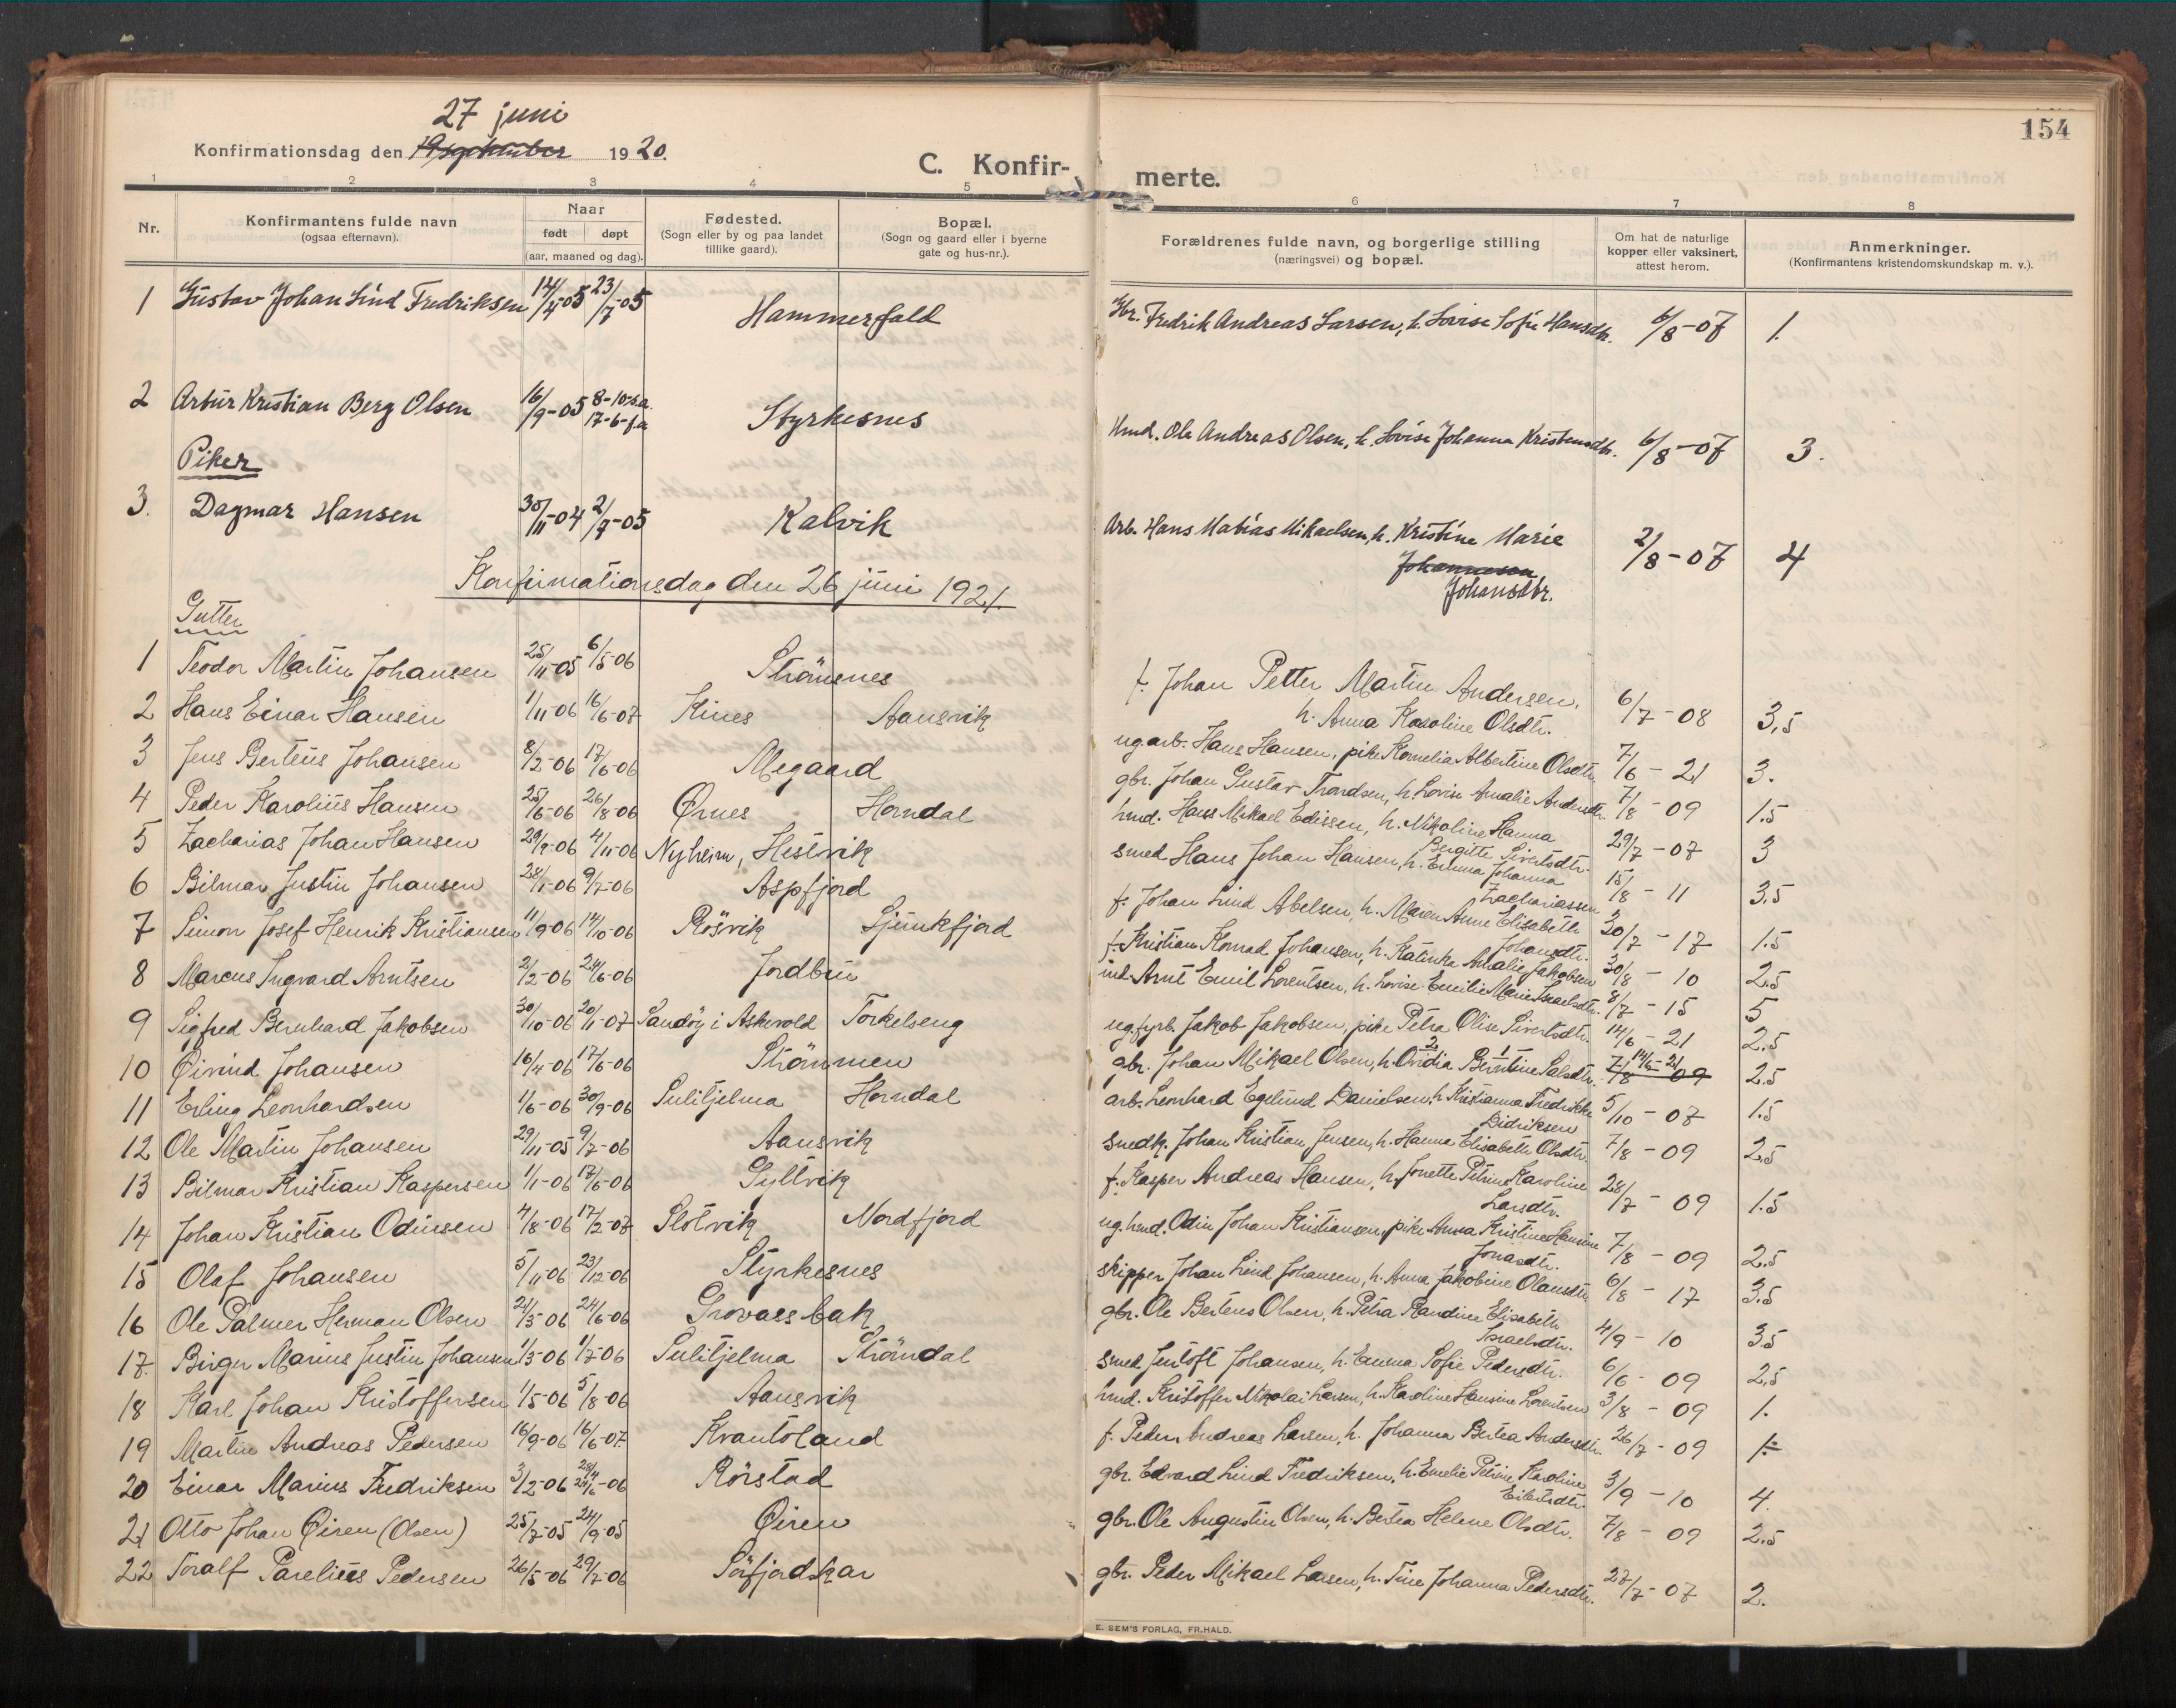 27 juni
Konfirmationsdag den 19 september 1920.
C. Konfir-
merte.
154
1 2 3 4 5 6 7 8
Nr.
Konfirmantens fulde navn
(ogsaa efternavn).
Naar
født døpt
(aar, maaned og dag).
Fødested.
(Sogn eller by og paa landet
tillike gaard).
Bopæl.
(Sogn og gaard eller i byerne
gate og hus-nr.).
Forældrenes fulde navn, og borgerlige stilling
(næringsvei) og bopæl.
Om hat de naturlige
kopper eller vaksinert,
attest herom.
Anmerkninger.
(Konfirmantens kristendomskundskap m. v.).
1 Gustav Johan Lind Fredriksen 14/4-05 23/7-05 Hammerfald Gbr. Fredrik Andreas Larsen, h. Lovise Sofie Hansdtr. 6/8-07 1.
2 Artur Kristian Berg Olsen 16/9-05 8-10 s.a. 17-6-f.a Styrkesnes Hmd. Ole Andreas Olsen, h. Lovise Johanna Kristensdtr. 6/8-07 3.
Piker
3. Dagmar Hansen 30/11-04 2/7-05 Kalvik Arb. Hans Matias Mikaelsen, h. Kristine Marie 2/8-07 4
Johannesen
Johansdtr.
Konfirmationsdag den 26 juni 1921.
Gutter
1 Teodor Martin Johansen 25/11-05 6/5-06 Strømsnes f. Johan Petter Martin Andersen, 6/7-08 3,5
h. Anna Karoline Olsdtr.
2 Hans Einar Hansen 1/11-06 16/6-07 Kines Aansvik ug. arb. Hans Hansen, pike Kornelia Albertine Olsdtr. 7/6-21 3.
3 Jens Berteus Johansen 8/2-06 17/6-06 Megaard gbr. Johan Gustav Trondsen, h. Lovise Amalie Andersdtr. 7/8-09 1.5
4 Peder Karolius Hansen 25/6-06 26/8-06 Ørnes Horndal hmd. Hans Mikael Edissen, h. Nikoline Hanna 29/7-07 3
Bergitte Sivertsdtr.
5 Zacharias Johan Hansen 29/9-06 4/11-06 Nyheim, Hestvik smed Hans Johan Hansen, h. Emma Johanna 15/8-11 3,5
Zachariassen
6 Bilmar Justin Johansen 28/1-06 9/7-06 Aspfjord f. Johan Lind Abelsen, h. Maren Anne Elisabeth 20/7-17 1.5
Johansdtr.
7 Simon Josef Henrik Kristiansen 11/9-06 14/10-06 Røsvik Sjunkfjord f. Kristian Konrad Johansen, h. Katinka Amalie Jakobsen 30/8-10 2.5
8 Marcus Ingvard Arntsen 2/2-06 24/6-06 Jordbru ind. Arnt Emil Lorentsen, h. Lovise Emilie Marie Israelsdtr. 8/7-15 5
9 Sigfred Bernhard Jakobsen 30/10-06 20/11-07 Sandøy i Askevold Torkelseng ug. fyrb. Jakob Jakobsen, pike Petra Olise Sivertsdtr. 14/6-21 2.5
10 Øivind Johansen 16/4-06 17/6-06 Strømmen gbr. Johan Mikael Olsen, h. Ovidia Berntine Salsdtr. 7/8 14/6-21 09 2.5
2 1
11 Erling Leonhardsen 1/6-06 30/9-06 Sulitjelma Horndal arb. Leonhard Egelund Danielsen, h. Kristianna Fredrikke 5/10-07 1.5
Didriksen
12 Ole Martin Johansen 29/11-05 9/7-06 Aansvik smedk. Johan Kristian Jensen, h. Hanna Elisabeth Olsdtr. 7/8-09 2,5
13 Bilmar Kristian Kaspersen 1/1-06 17/6-06 Gyltvik f. Kasper Andreas Hansen, h. Jonette Petrine Karoline 28/7-09 1.5
Larsdtr.
14 Johan Kristian Odinsen 4/8-06 17/2-07 Slotvik Nordfjord ug. hmd. Odin Johan Kristiansen, pike Anna Kristine Hansine 7/8-09 2.5
Jonasdtr.
15 Olaf Johansen 5/11-06 23/12-06 Styrkesnes skipper Johan Lind Johansen, h. Anna Jakobine Olausdtr. 6/8-17 3.5
16 Ole Palmer Herman Olsen 21/3-06 24/6-06 Grovassbak gbr. Ole Berteus Olsen, h. Petra Randine Elisabeth 4/9-10 35
Israelsdtr.
17. Birger Marius Justin Johansen 1/3-06 1/7-06 Sulitjelma Strømdal smed Jentoft Johansen, h. Emma Sofie Pedersdtr. 6/6-09 2,5
18 Karl Johan Kristoffersen 1/5-06 5/8-06 Aansvik hmd. Kristoffer Nikolai Larsen, h. Karoline Hansine Lorentsen 3/8-09 1.
19 Martin Andreas Pedersen 16/9-06 16/6-07. Kvantoland f. Peder Andreas Larsen, h. Johanna Bertea Andersdtr. 26/7-09 1
20 Einar Marius Fredriksen 3/2-06 28/4 24/6-06 Rørstad gbr. Edvard Lind Fredriksen, h. Emelie Petrine Karoline 3/9-10 4.
Eilertsdtr.
21 Otto Johan Øiren (Olsen) 25/7-05 24/9-05 Øiren gbr. Ole Augustin Olsen, h. Bertea Helene Olsdtr. 7/8-09 2.5
22 Toralf Parelius Pedersen 26/5-06 29/7-06 Sørfjordskar gbr. Peder Mikael Larsen, h. Tine Johanna Pedersdtr. 27/7-07 2.
E. SEM'S FORLAG, FR.HALD.